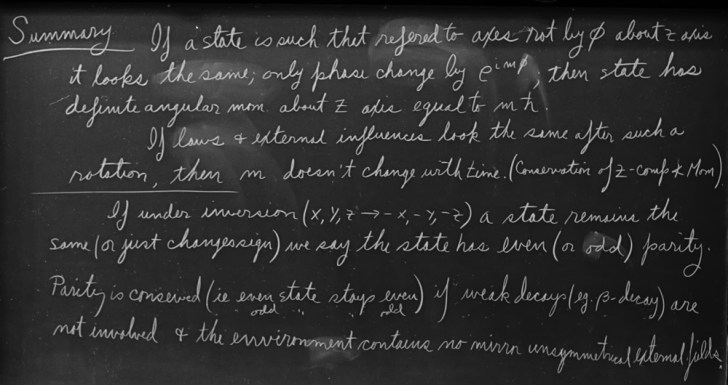 Summary If a state is such that refered to axes rot by φ about z axis
it looks the same; only phase change by e^{imφ}, then state has
definite angular mom. about z axis equal to mħ.
If laws & external influences look the same after such a
rotation, then m doesn't change with time. (Conservation of z-comp & Mom)
If under inversion (x, y, z → -x, -y, -z) a state remains the
same (or just changes sign) we say the state has even (or odd) parity.
Parity is conserved (ie even state stays even) if weak decays (eg. β-decay) are
odd " " odd
not involved & the environment contains no mirror unsymmetrical external fields